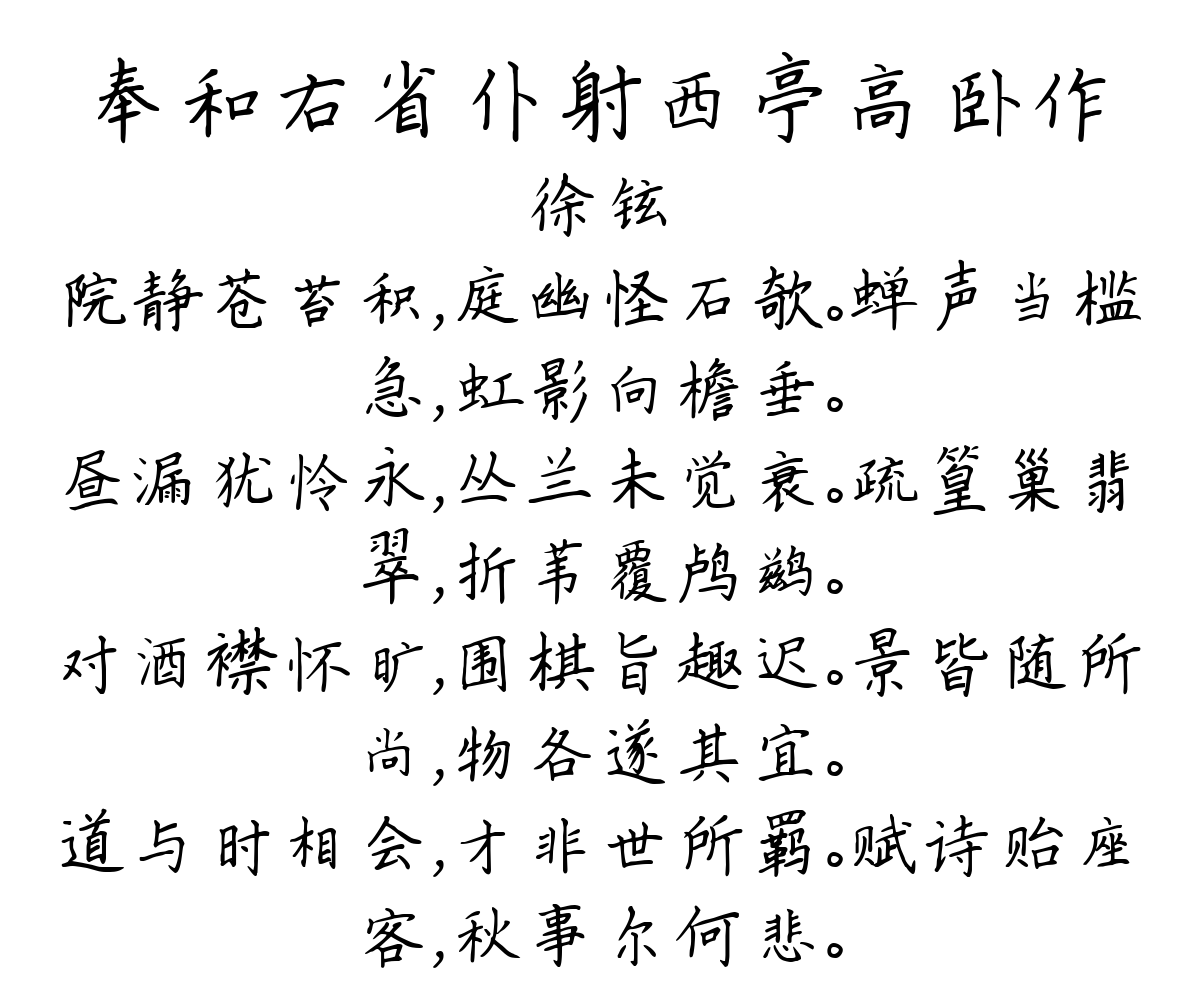 奉和右省仆射西亭高卧作
徐铉
院静苍苔积,庭幽怪石欹。蝉声当槛
急,虹影向檐垂。
昼漏犹怜永,丛兰未觉衰。疏篁巢翡
翠,折苇覆鸬鹚。
对酒襟怀旷,围棋旨趣迟。景皆随所
尚,物各遂其宜。
道与时相会,才非世所羁。赋诗贻座
客,秋事尔何悲。